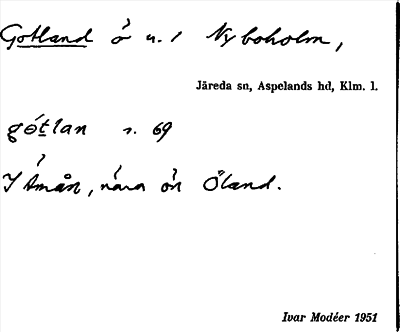 Gotland ö u. / Nyboholm,
Järeda sn, Aspelands hd, Klm. l.
gó̀tlan s. 69
I Åmån, nära ön Öland.
Ivar Modéer 1951